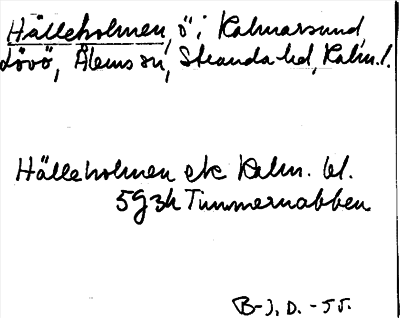 Hälleholmen, ö i Kalmarsund,
Lövö, Ålems sn, Stranda hd, Kalm. l.
Hälleholmen ek Kalm. bl.
5G3h Timmernabben
B-J. D. -55.